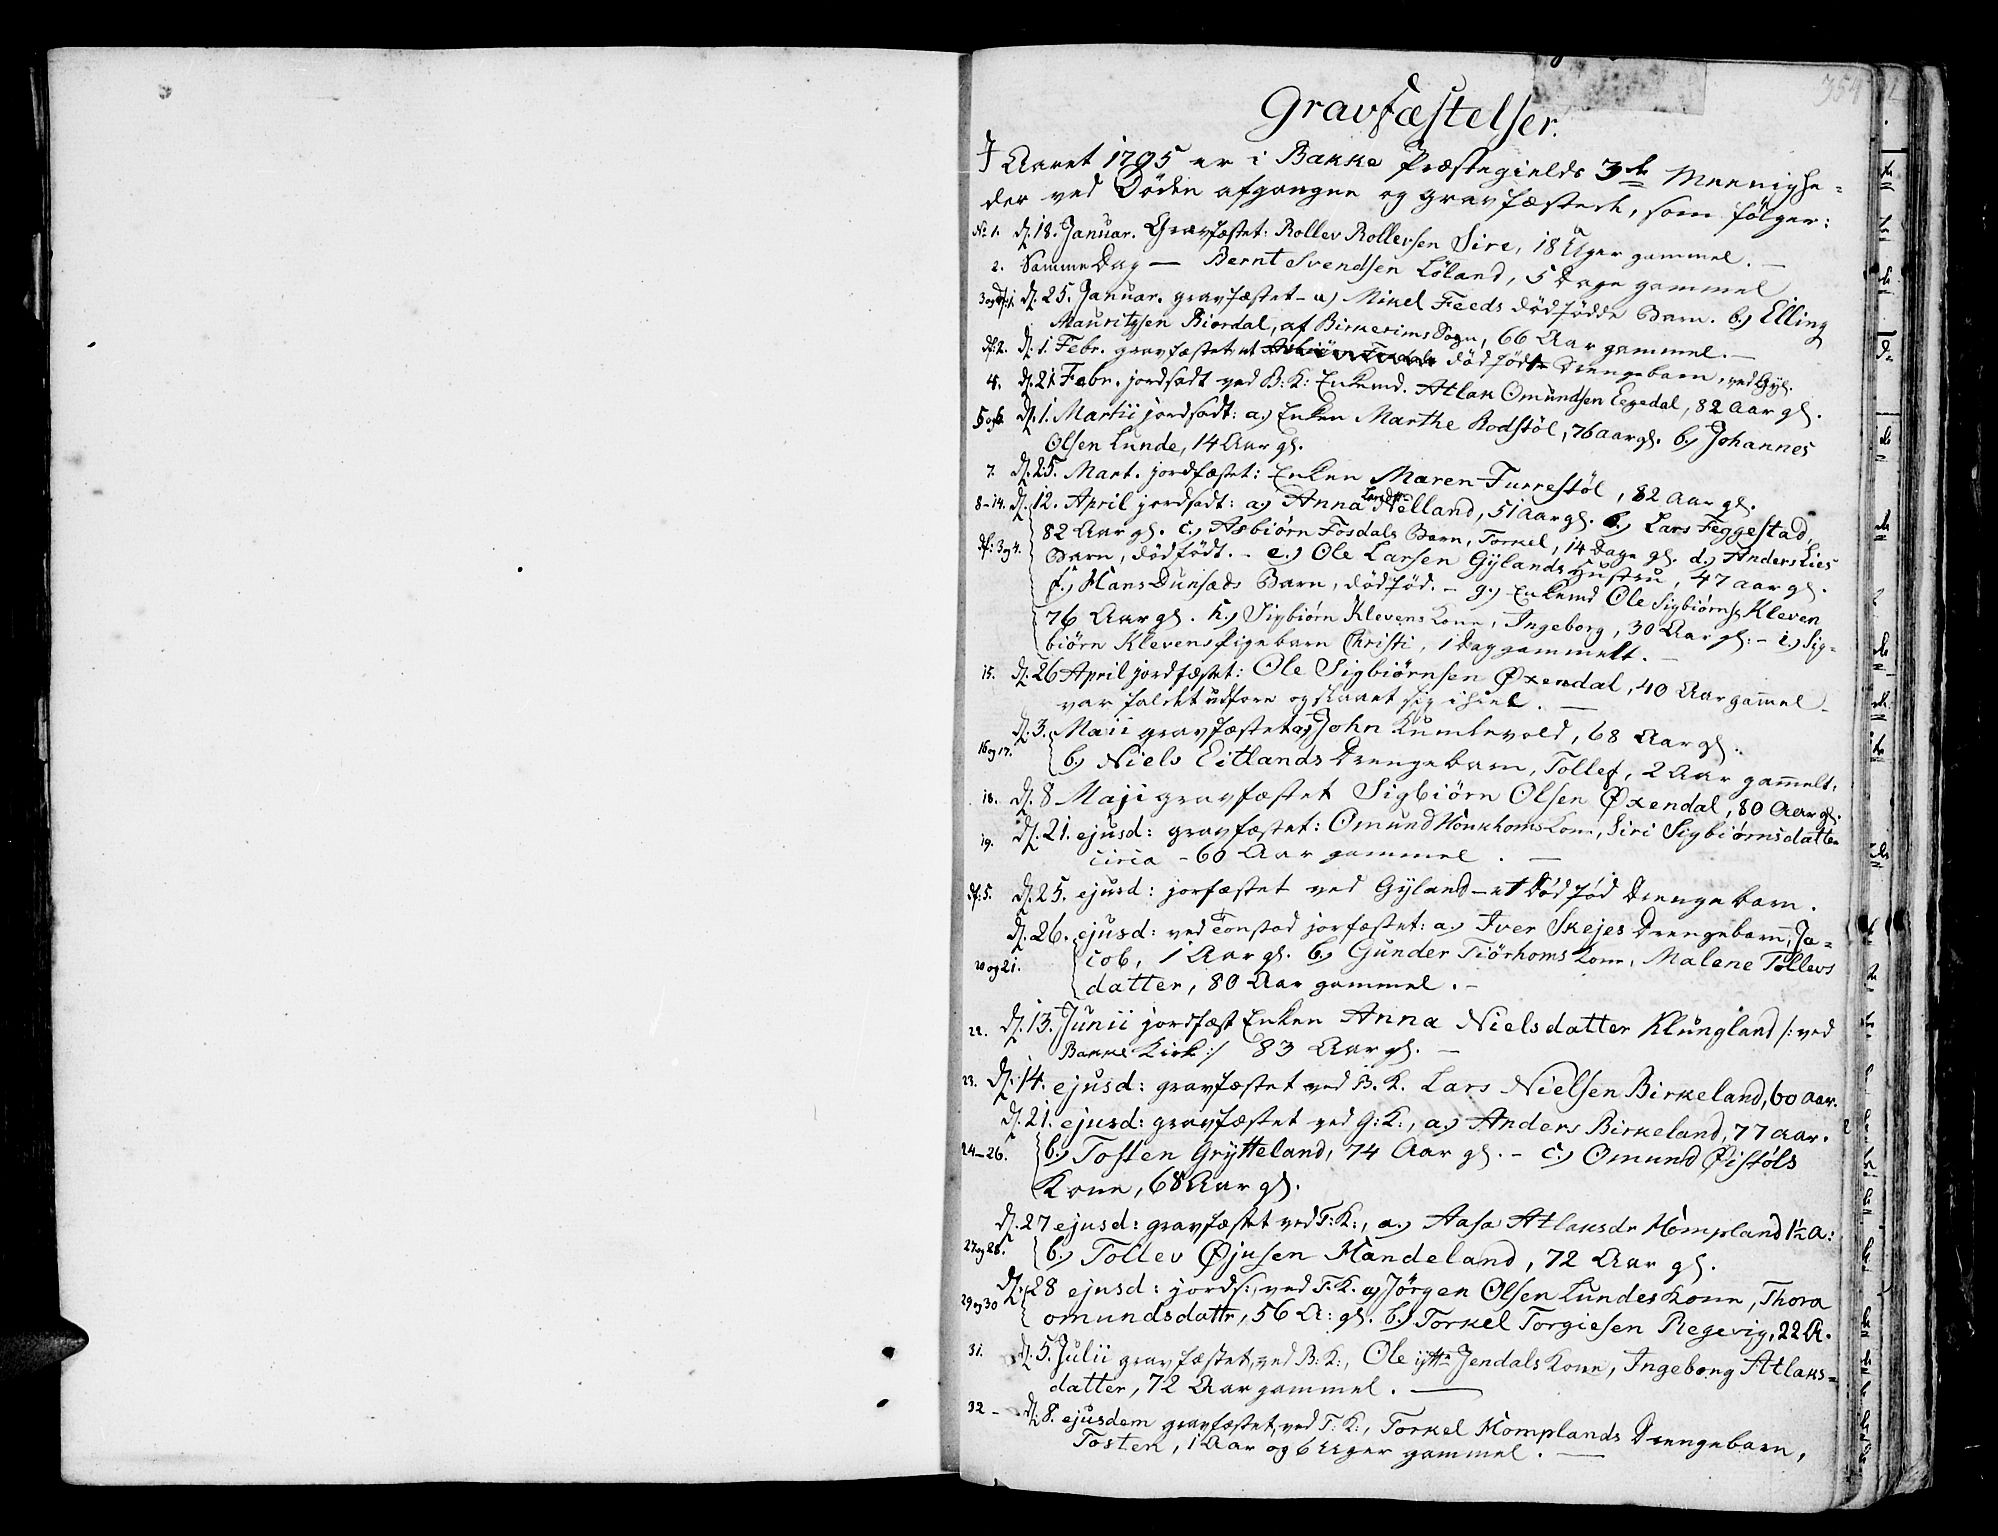 354
Gravfæstelser.
I Aaret 1795 er i Bakke Præstegields 3de Meenighe-
der ved Døden afgangne og gravfæstede, som følger:
No 1. d. 18. Januar. Gravfæstet: Rollev Rollevsen Sire, 18 Uger gammel. —
2. Samme Dag — Bernt Svendsen Løland, 5 Dage gammel
3 og df: 1. d. 25. Januar. gravfæstet - a) Mikel Feeds dødfødde Barn. b.) Elling
Mauritzsen Biordal, af Birkerims Sogn, 66 Aar gammel. —
df: 2. d. 1. Febr. gravfæstet, et dødfødt Drengebarn, ved Gyl.
4. d. 21 Febr. jordsadt ved B: K: Enkemd. Atlak Omundsen Eegedal, 82 Aar gl.
5 og 6. d. 1. Martii jordsadt: a.) Enken Marthe Rodstøl, 76 aar gl. b.) Johannes
Olsen Lunde, 14 Aar gl.
7. d. 25. Mart. jordfæstet: Enken Maren Furrestøl, 82 Aar gl.
8-14. d. 12. April jordsadt: a.) Anna Larsdtr Nelland, 51 Aar gl. b.) Lars Feggestad,
82 Aar gl. c.) Asbiørn Fosdals Barn, Torkel, 14 Dage gl. d.) Anders Lies
df: 3 og 4. Barn, dødfødt. - e.) Ole Larsen Gylands Hustru, 47 aar gl.
f.) Hans Dunsæds Barn, dødfød. - g.) Enkemd Ole Sigbiørns. Kleven
76 Aar gl. h.) Sigbiørn Klevens Kone, Ingeborg, 30 Aar gl: - i.) Sig-
biørn Klevens Pigebarn Christi, 1 Dag gammelt. —
15. d. 26 April jordfæstet: Ole Sigbiørnsen Øxendal, 40 Aar gamel -
var faldet udfore og slaaet sig ihiel. —
d. 3. Maii gravfæstet a) John Kumlevold, 68 Aar gl.
16 og 17. b.) Niels Eitlands Drengebarn, Tollef, 2 Aar gamelt.
18. d. 8 Maji gravfæstet Sigbiørn Olsen Øxendal, 80 Aar gl.
19. d. 21. ejusd: gravfæstet: Omund Honkhoms Kone, Siri Sigbiørnsdatter
circa - 60 Aar gammel. —
df: 5. d. 25. ejusd: jorfæstet ved Gyland - et Dødfød Drengebarn.
d. 26. ejusd: ved Tonstad jorfæstet: a.) Iver Skejes Drengebarn, Ja-
20 og 21. cob, 1 Aar gl. b.) Gunder Tiørhoms Kone, Malene Tollevs
datter, 80 Aar gammel. -
22. d. 13. Junii jordfæst Enken Anna Nielsdatter Klungland /: ved
Bakke Kirk :/ 83 Aar gl. —
23. d. 14. ejusd: gravfæstet ved B. K. Lars Nielsen Birkeland, 60 aar.
d. 21. ejusd: gravfæstet ved G: K:, a.) Anders Birkeland, 77 aar.
24-26. b.) Tosten Grytteland, 74 Aar gl. - c.) Omund Øistøls
Kone, 68 Aar gl.
d. 27 ejusd: gravfæstet ved T: K:, a.) Aasa Atlaksdr Hompland 1½ A:
27 og 28. b.) Tollev Øjusen Handeland, 72 Aar gl.
d. 28 ejusd: jords:, ved T: K. a) Jørgen Olsen Lundes Kone, Thora
29 og 30 omundsdattr, 56 A: gl. b.) Torkel Torgiesen Regevig, 22 A.
31. d. 5. Julii gravfæstet, ved B: K:, Ole ytte Jendals Kone, Ingeborg Atlaks-
datter, 72 Aar gammel. —
32 - d. 8. ejusdem gravfæstet, ved T: K:, Torkel Homplands Drengebarn,
Tosten, 1 Aar og 6 Uger gammel. —